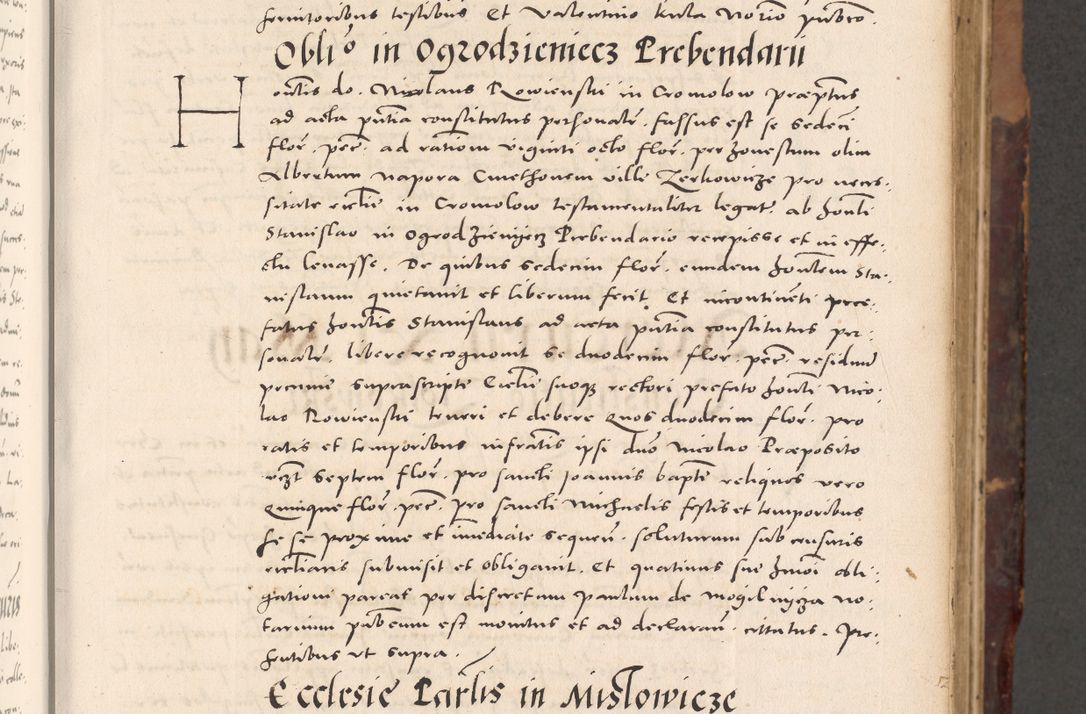 seruitoribus testibus Et Valentino Kula Nořio pub̃co.
Oblio in Ogrodzieniecz Prebendarii
Honẽtis do. Nicolaus Rowienski in Cromolow præp̃tus
ad acta p̃ntia constitutus personalr̃. fassus est se sedeci
flor̃. pec̃. ad rationẽ viginti octo flor̃. per honestum olim
Albertum Napora Cmethonem ville Zerkowicze pro neces:
sitate ecclie in Cromolow testamentaliter legat. ab honli
Stanislao in Ogrodzieniecz Prebendario recepisse et in effe:
ctu leuasse. De quibus sedecim flor̃. eundem honl̃em Sta:
nislaum quietauit et liberum fecit. Et incontinẽti præ:
fatus honẽtis Stanislaus ad acta p̃ntia constitutus per:
sonalr̃. libere recognouit se duodecim flor. pec̃. residuũ
pecunie suprascripte Ecclie suoq̃ rectori prefato honli Nico:
lao Rowienski teneri et debere Quos duodecim flor̃. pro
ratis et temporibus infrãtis ipsi dño Nicolao Præposito
septem flor̃. pro sancti Joannis bapte reliquos vero
Quinque flor̃. pec̃. pro sancti Michaelis festis et temporibus
se se proxime et im̃ediate sequen̄. soluturum sub censuris
ecclĩaris submisit et obligauit. Et quatinus sue h̃moi obli:
gationi pareat per discretum paulum de Mogilnycza No:
tarium pub̃cum est monitus et ad declaran̄. citatus. Præ:
sentibus vt supra.
Ecclesie Parlis in Mislowicze